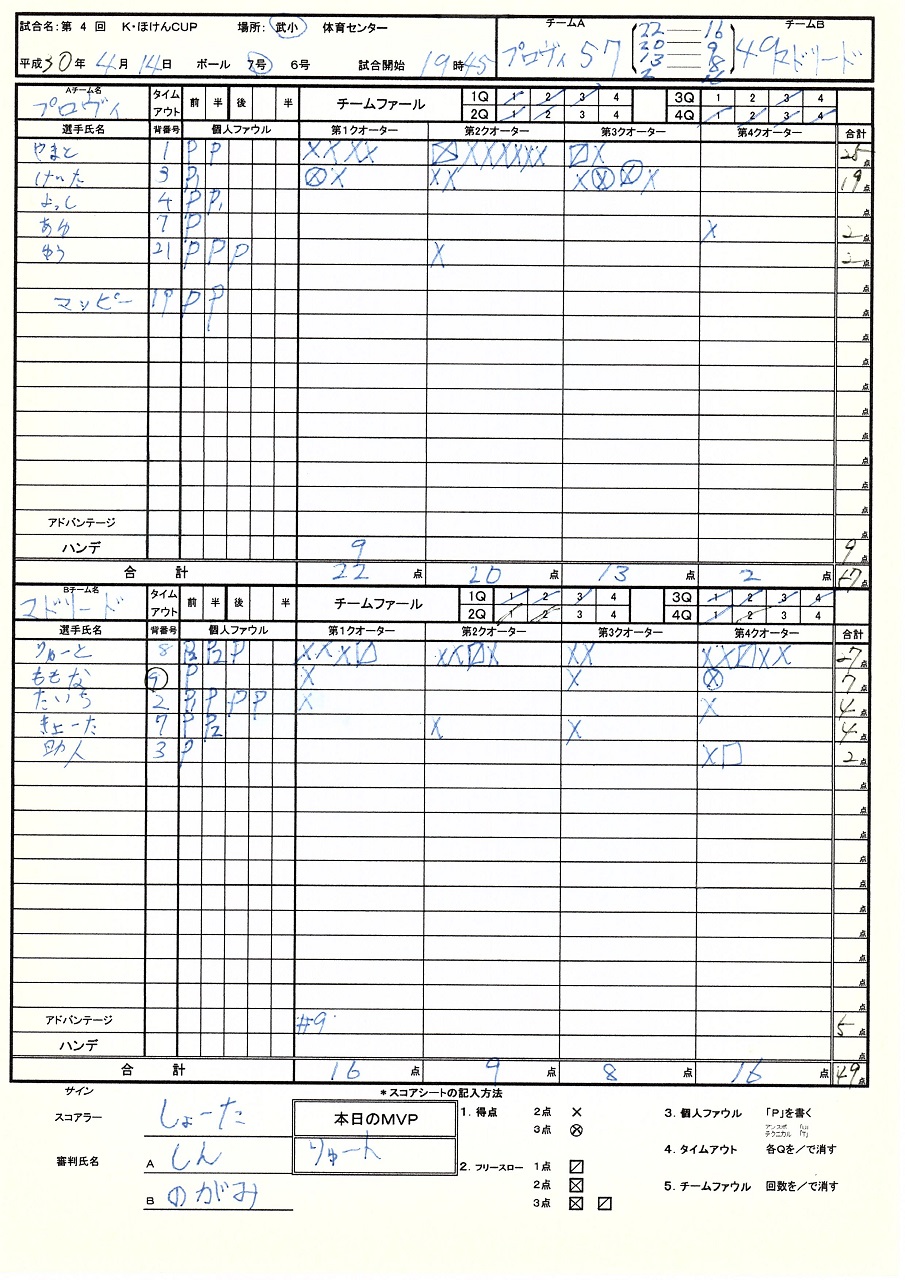 試合名:第 4 回 K・ほけんCUP 場所: 武小 体育センター
平成30年 4月 14日 ボール 7号 6号 試合開始 19時45
チームA チームB
プロヴィ 57 49 マドリード
22 — 16
20 — 9
13 — 8
2 — 16
Aチーム名 プロヴィ タイムアウト 前 半 後 半 チームファール 1Q 1 2 3 4 3Q 1 2 3 4
2Q 1 2 3 4 4Q 1 2 3 4
選手氏名 背番号 個人ファウル 第1クオーター 第2クオーター 第3クオーター 第4クオーター 合計
やまと 1 P P 25点
けいた 3 P1 19点
よっし 4 P P1 点
あゆ 7 P 2点
ゆう 21 P P P 2点
点
マッピー 19 P P 点
アドバンテージ 点
ハンデ 9 9点
合 計 22点 20点 13点 2点 57点
Bチーム名 マドリード タイムアウト 前 半 後 半 チームファール 1Q 1 2 3 4 3Q 1 2 3 4
2Q 1 2 3 4 4Q 1 2 3 4
選手氏名 背番号 個人ファウル 第1クオーター 第2クオーター 第3クオーター 第4クオーター 合計
りゅーと 8 P2 P2 P 27点
ももな 9 P 7点
たいち 2 P1 P P P 4点
きょーた 7 P P2 4点
助人 3 P 2点
アドバンテージ #9 5点
ハンデ 点
合 計 16点 9点 8点 16点 49点
サイン
スコアラー しょーた
審判氏名 A しん
B のがみ
本日のMVP
りゅーと
*スコアシートの記入方法
1. 得点 2点 ×
3点 ⊗
2. フリースロー 1点 ⍁
2点 ☒
3点 ☒ ⍁
3. 個人ファウル 「P」を書く
アンスポ 「U」
テクニカル 「T」
4. タイムアウト 各Qを/で消す
5. チームファウル 回数を/で消す